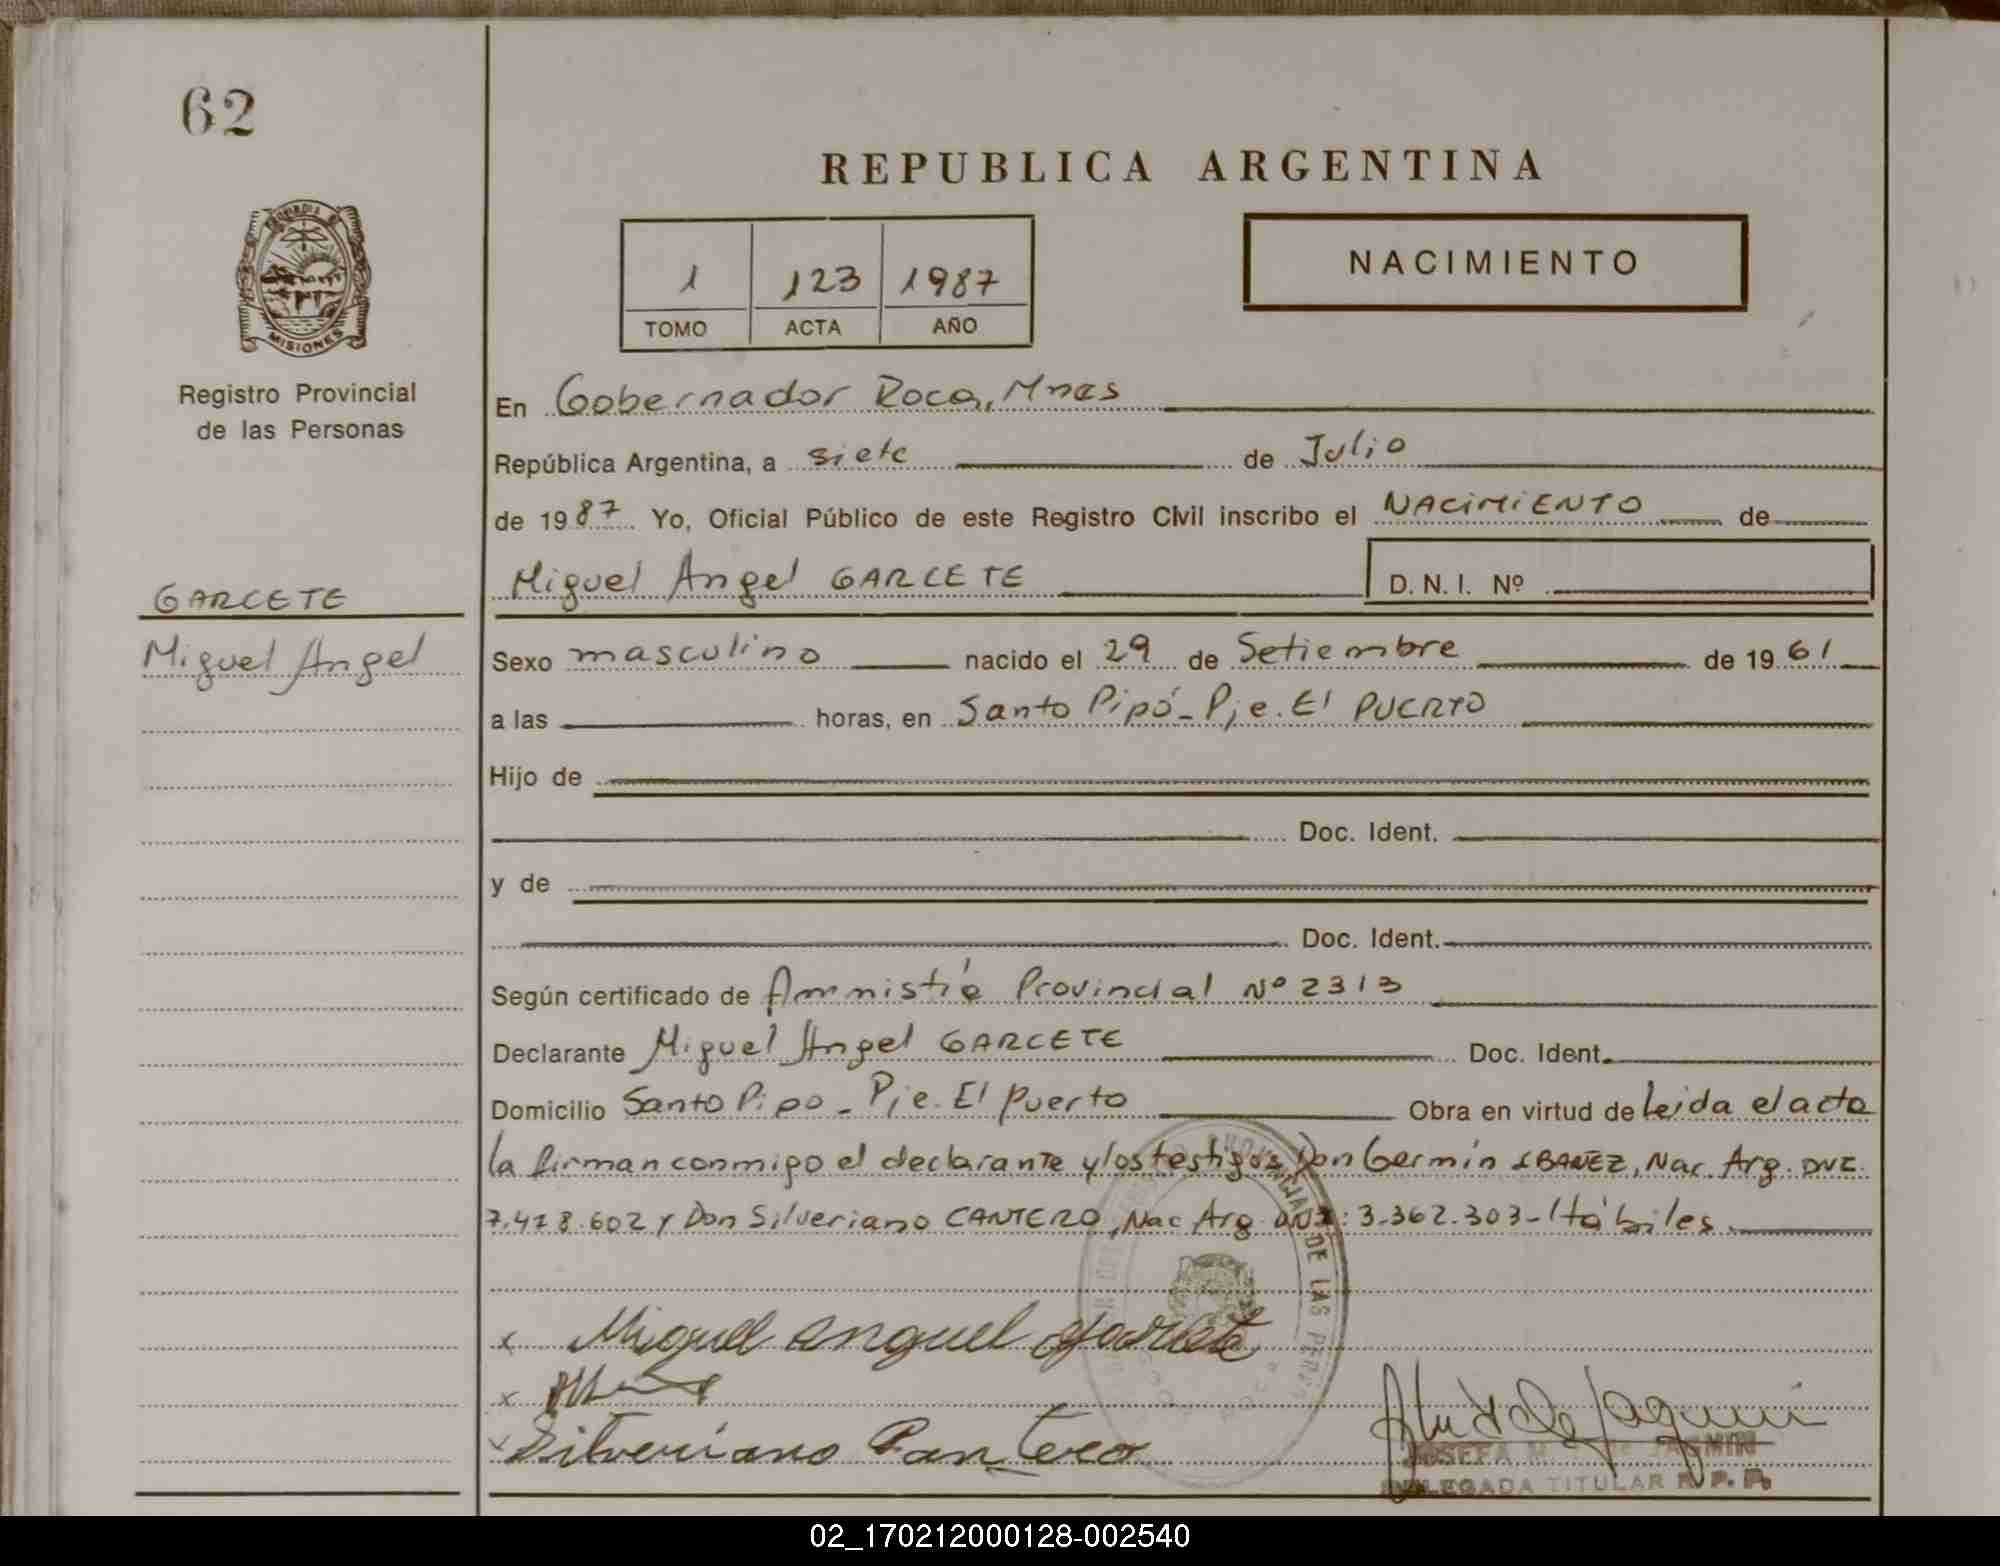 62
REPUBLICA ARGENTINA
PROVINCIA DE
MISIONES
Registro Provincial
de las Personas
1 123 1987
TOMO ACTA AÑO
NACIMIENTO
En Gobernador Roca, Mnes
República Argentina, a siete de Julio
de 1987 Yo, Oficial Público de este Registro Civil inscribo el NACIMIENTO de
Miguel Angel GARCETE D.N.I. Nº
GARCETE
Miguel Angel
Sexo masculino nacido el 29 de Setiembre de 1961
a las horas, en Santo Pipó - Pje. El PUERTO
Hijo de
Doc. Ident.
y de
Doc. Ident.
Según certificado de Amnistía Provincial Nº 2313
Declarante Miguel Angel GARCETE Doc. Ident.
Domicilio Santo Pipo - Pje. El Puerto Obra en virtud de Leida el acta
la firman conmigo el declarante y los testigos Don Germín IBAÑEZ, Nac. Arg. DNI.
7.418.602 y Don Silveriano CANTERO, Nac Arg. DNI: 3.362.303 - Hábiles.
DE LAS PERSONAS
ROCA
x Miguel anguel garcete
x
x Silveriano Cantero
JOSEFA M. de JAGMIN
DELEGADA TITULAR R. P. P.
02_170212000128-002540